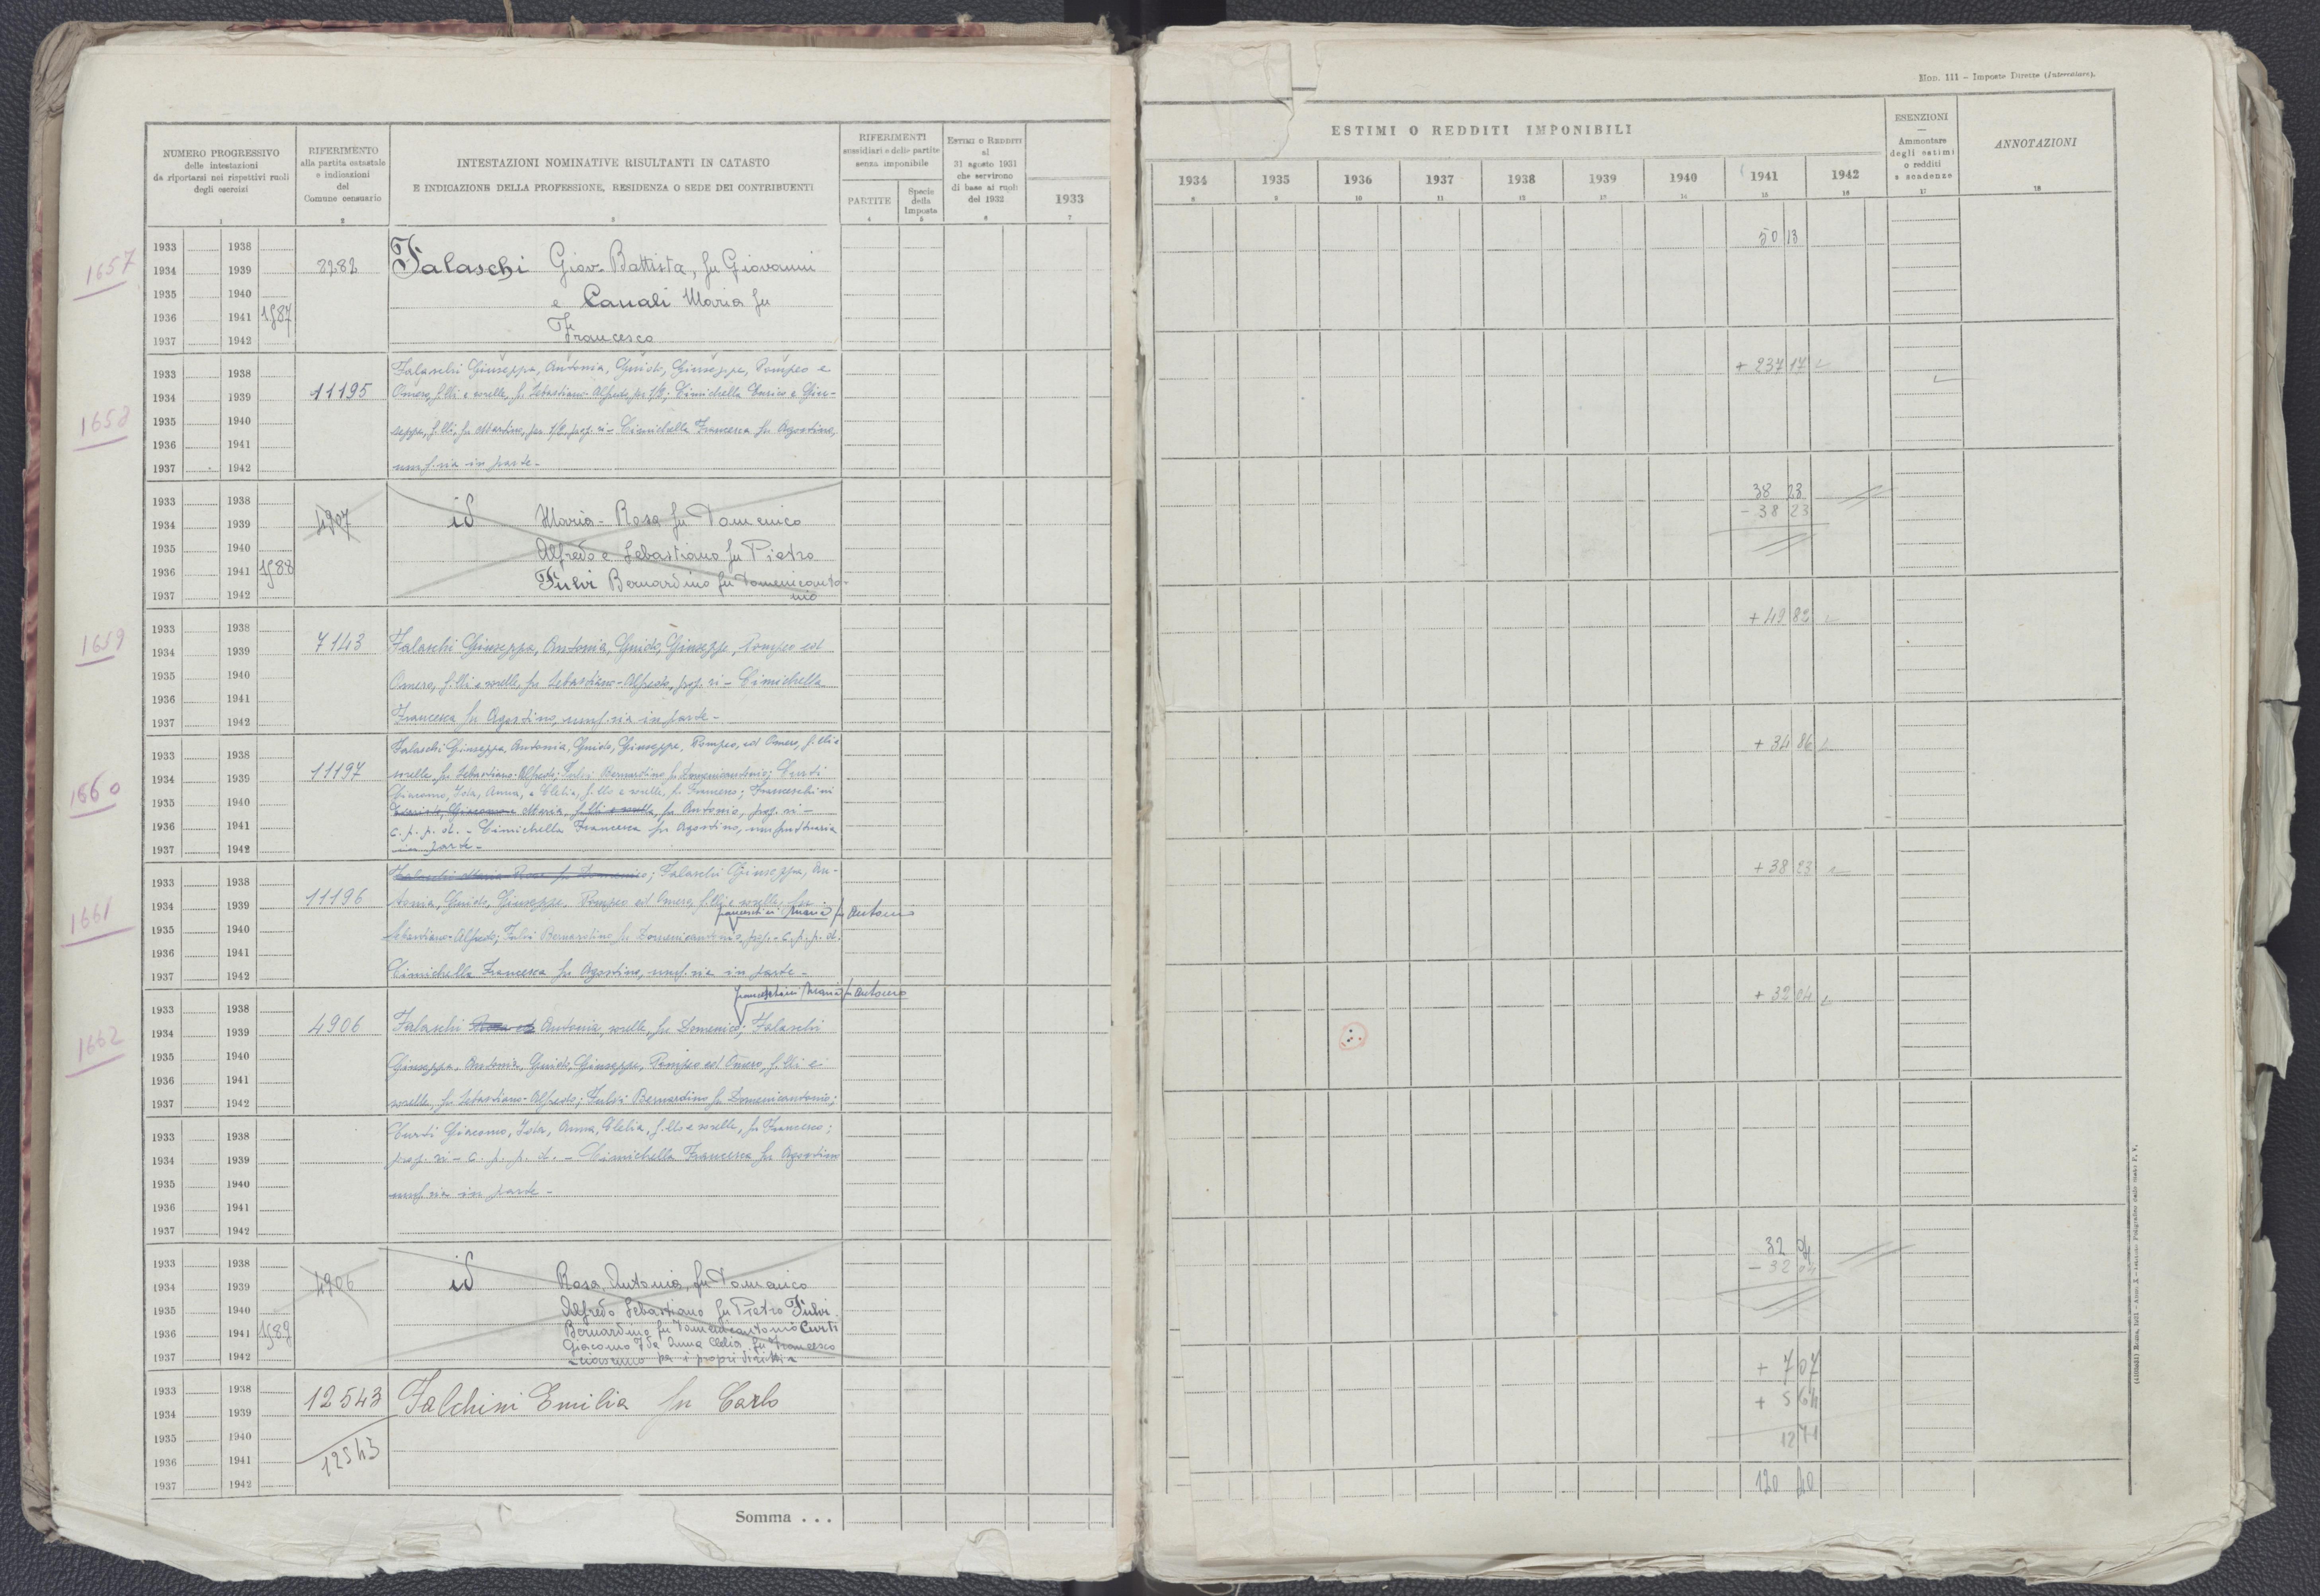 Mod. 111 – Imposte Dirette (Intercalare).
NUMERO PROGRESSIVO
delle intestazioni
da riportarsi nei rispettivi ruoli
degli esercizi
1
RIFERIMENTO
alla partita catastale
e indicazioni
del
Comune censuario
2
INTESTAZIONI NOMINATIVE RISULTANTI IN CATASTO
E INDICAZIONE DELLA PROFESSIONE, RESIDENZA O SEDE DEI CONTRIBUENTI
3
RIFERIMENTI
sussidiari e delle partite
senza imponibile
PARTITE
4
Specie
della
Imposta
5
ESTIMI O REDDITI
al
31 agosto 1931
che servirono
di base ai ruoli
del 1932
6
1933
7
ESTIMI O REDDITI IMPONIBILI
1934 1935 1936 1937 1938 1939 1940 1941 1942
8 9 10 11 12 13 14 15 16
ESENZIONI
—
Ammontare
degli estimi
o redditi
e scadenze
17
ANNOTAZIONI
18
1657
1933 1938
1934 1939
1935 1940
1936 1941 1587
1937 1942
8282
Falaschi Giov. Battista, fu Giovanni
e Canali Maria fu
Francesco
50 13
1658
1933 1938
1934 1939
1935 1940
1936 1941
1937 1942
11195
Falaschi Giuseppa, Antonia, Guido, Giuseppe, Pompeo e
Omero, f.lli e sorelle, fu Sebastiano-Alfredo, per 1/2; Cimichella Enrico e Giu-
seppa, f.lli, fu Martino, per 1/2, prop.ri – Cimichella Francesca fu Agostino,
usuf.ria in parte –
+ 237 17
1933 1938
1934 1939
1935 1940
1936 1941 1588
1937 1942
4907
id Maria-Rosa fu Domenico
Alfredo e Sebastiano fu Pietro
Fulvi Bernardino fu Domenicanto-
nio
38 23
- 38 23
1659
1933 1938
1934 1939
1935 1940
1936 1941
1937 1942
7143
Falaschi Giuseppa, Antonia, Guido, Giuseppe, Pompeo ed
Omero, f.lli e sorelle, fu Sebastiano-Alfredo, prop.ri – Cimichella
Francesca fu Agostino, usuf.ria in parte –
+ 49 82
1660
1933 1938
1934 1939
1935 1940
1936 1941
1937 1942
11197
Falaschi Giuseppa, Antonia, Guido, Giuseppe, Pompeo, ed Omero, f.lli e
sorelle, fu Sebastiano-Alfredo; Fulvi Bernardino fu Domenicantonio; Curti
Giacomo, Ida, Anna, e Clelia, f.llo e sorelle, fu Francesco; Franceschini
Giacomo e Maria, f.lli e sorella, fu Antonio, prop.ri –
c. p. p. d. – Cimichella Francesca fu Agostino, usufruttuaria
in parte –
+ 34 86
1661
1933 1938
1934 1939
1935 1940
1936 1941
1937 1942
11196
Falaschi Maria Rosa fu Domenico; Falaschi Giuseppa, An-
tonia, Guido, Giuseppe, Pompeo ed Omero, f.lli e sorelle, fu
Franceschini Maria fu Antonio
Sebastiano-Alfredo; Fulvi Bernardino fu Domenicantonio, prop. – c. p. p. d.
Cimichella Francesca fu Agostino, usuf.ria in parte –
+ 38 23
1662
1933 1938
1934 1939
1935 1940
1936 1941
1937 1942
4906
Franceschini Maria fu Antonio
Falaschi Rosa ed Antonia, sorelle, fu Domenico; Falaschi
Giuseppa, Antonia, Guido, Giuseppe, Pompeo ed Omero, f.lli e
sorelle, fu Sebastiano-Alfredo; Fulvi Bernardino fu Domenicantonio;
+ 32 04
1933 1938
1934 1939
1935 1940
1936 1941
1937 1942
Curti Giacomo, Ida, Anna, Clelia, f.llo e sorelle, fu Francesco;
prop.ri – c. p. p. d. – Cimichella Francesca fu Agostino
usuf.ria in parte –
1933 1938
1934 1939
1935 1940
1936 1941 1589
1937 1942
4906
id Rosa, Antonia, fu Domenico
Alfredo Sebastiano fu Pietro Fulvi
Bernardino fu Domenicantonio Curti
Giacomo Ida Anna Clelia fu Francesco
ciascuno per i propri diritti
32 04
- 32 04
1933 1938
1934 1939
1935 1940
1936 1941
1937 1942
12543
12543
Falchini Emilia fu Carlo
+ 7 07
+ 5 64
12 71
Somma . . .
120 20